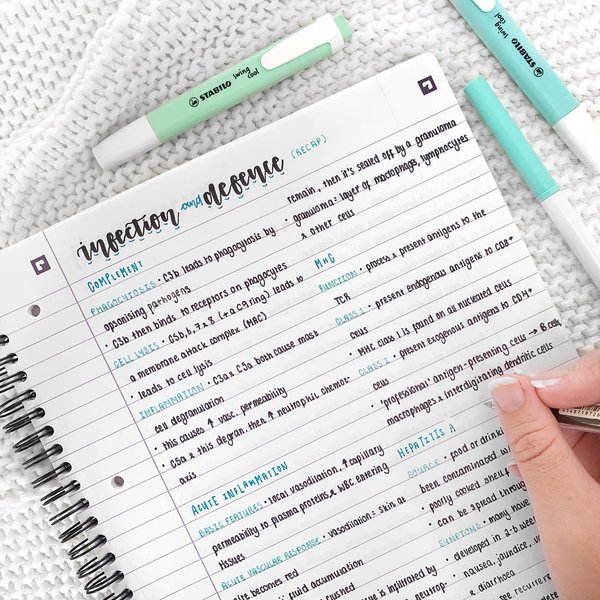 STABILO swing cool
STABILO swing cool
infection and defence (RECAP)
COMPLEMENT
PHAGOCYTOSIS • C3b leads to phagocytosis by
opsonising pathogens
• C3b then binds to receptors on phagocytes
CELL LYSIS • C5b, 6, 7 & 8 (+ a C9 ring) leads to
a membrane attack complex (MAC)
• leads to cell lysis
INFLAMMATION • C3a & C5a both cause mast
cell degranulation
• this causes ↑ vasc. permeability
• C5a & this degran. then ↑ neutrophil chemo-
axis
ACUTE INFLAMMATION
BASIC FEATURES • local vasodilation, ↑ capillary
permeability to plasma proteins & WBC entering
tissues
ACUTE VASCULAR RESPONSE • vasodilation: skin at
site becomes red
fluid accumulation
remain, then it's sealed off by a granuloma
• granuloma: layer of macrophages, lymphocytes
& other cells
MHC
FUNCTION • process & present antigens to the
TCR
CLASS 1 • present endogenous antigens to CD8+
cells
• MHC class 1 is found on all nucleated cells
CLASS 2 • present exogenous antigens to CD4+
cells
• 'professional' antigen-presenting cells → B cells
macrophages & interdigitating dendritic cells
HEPATITIS A
SOURCE • food or drinki
been contaminated w
• poorly cooked shell
• can be spread throug
SYMPTOMS • many have
• developed in 2-6 wee
• nausea, jaundice, v
& diarrhoea
see recurre
is infiltrated by
neutrop-